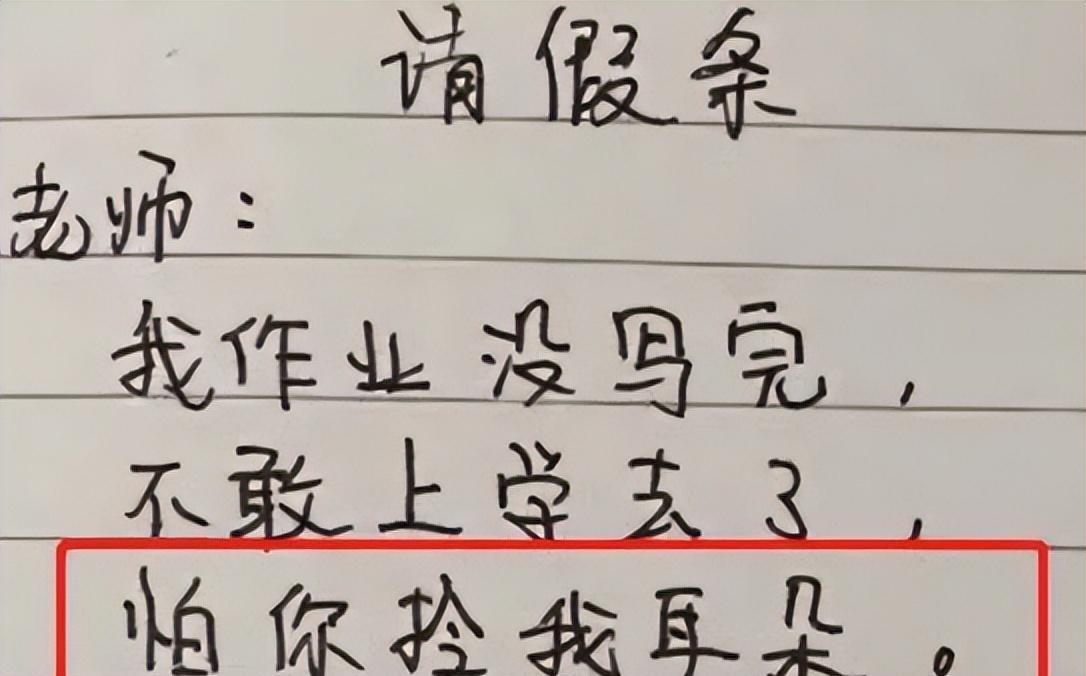 请假条
老师：
我作业没写完，
不敢上学去了，
怕你拴我耳朵。